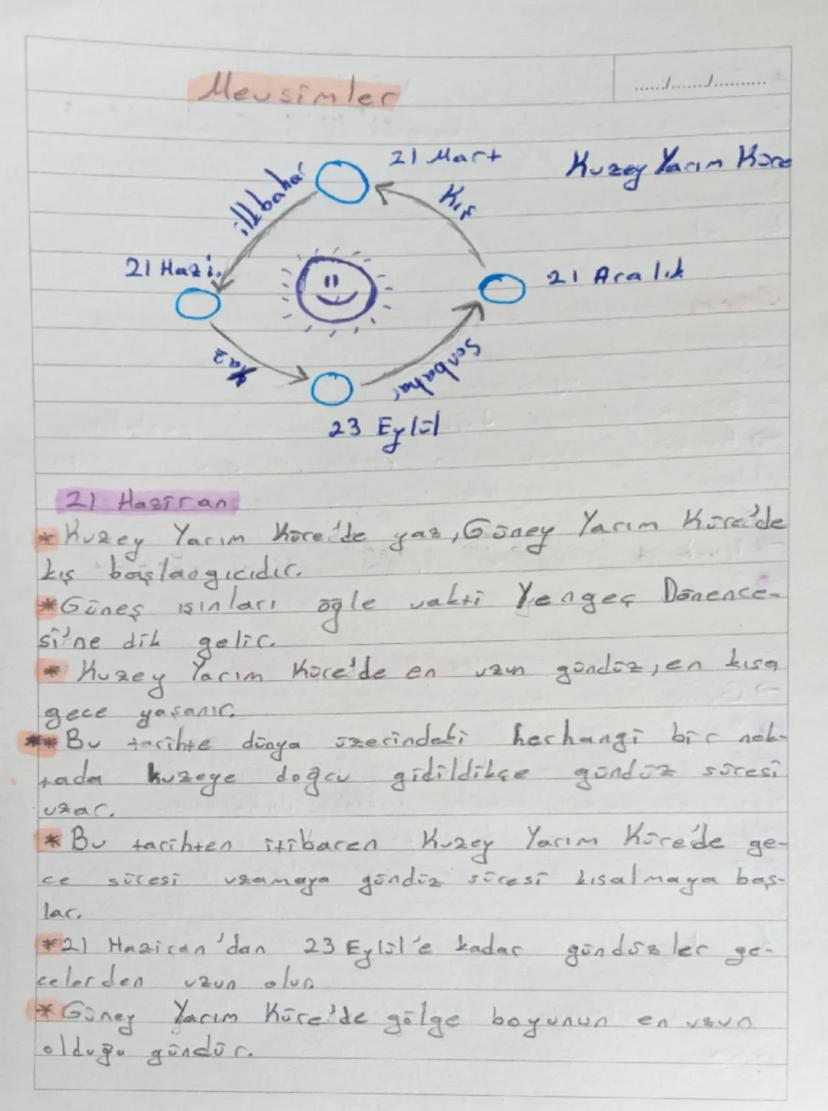 Mevsimler
....../......./..........
21 Mart
Kuzey Yarım Küre
ilkbahar
Kış
21 Hazi.
21 Aralık
Yaz
Sonbahar
23 Eylül
21 Haziran
* Kuzey Yarım Küre'de yaz, Güney Yarım Küre'de
kış başlangıcıdır.
* Güneş ışınları öğle vakti Yengeç Dönence-
si'ne dik gelir.
* Kuzey Yarım Küre'de en uzun gündüz, en kısa
gece yaşanır.
** Bu tarihte dünya üzerindeki herhangi bir nok-
tada kuzeye doğru gidildikçe gündüz süresi
uzar.
* Bu tarihten itibaren Kuzey Yarım Küre'de ge-
ce süresi uzamaya gündüz süresi kısalmaya baş-
lar.
* 21 Haziran'dan 23 Eylül'e kadar gündüzler ge-
celerden uzun olur.
* Güney Yarım Küre'de gölge boyunun en uzun
olduğu gündür.